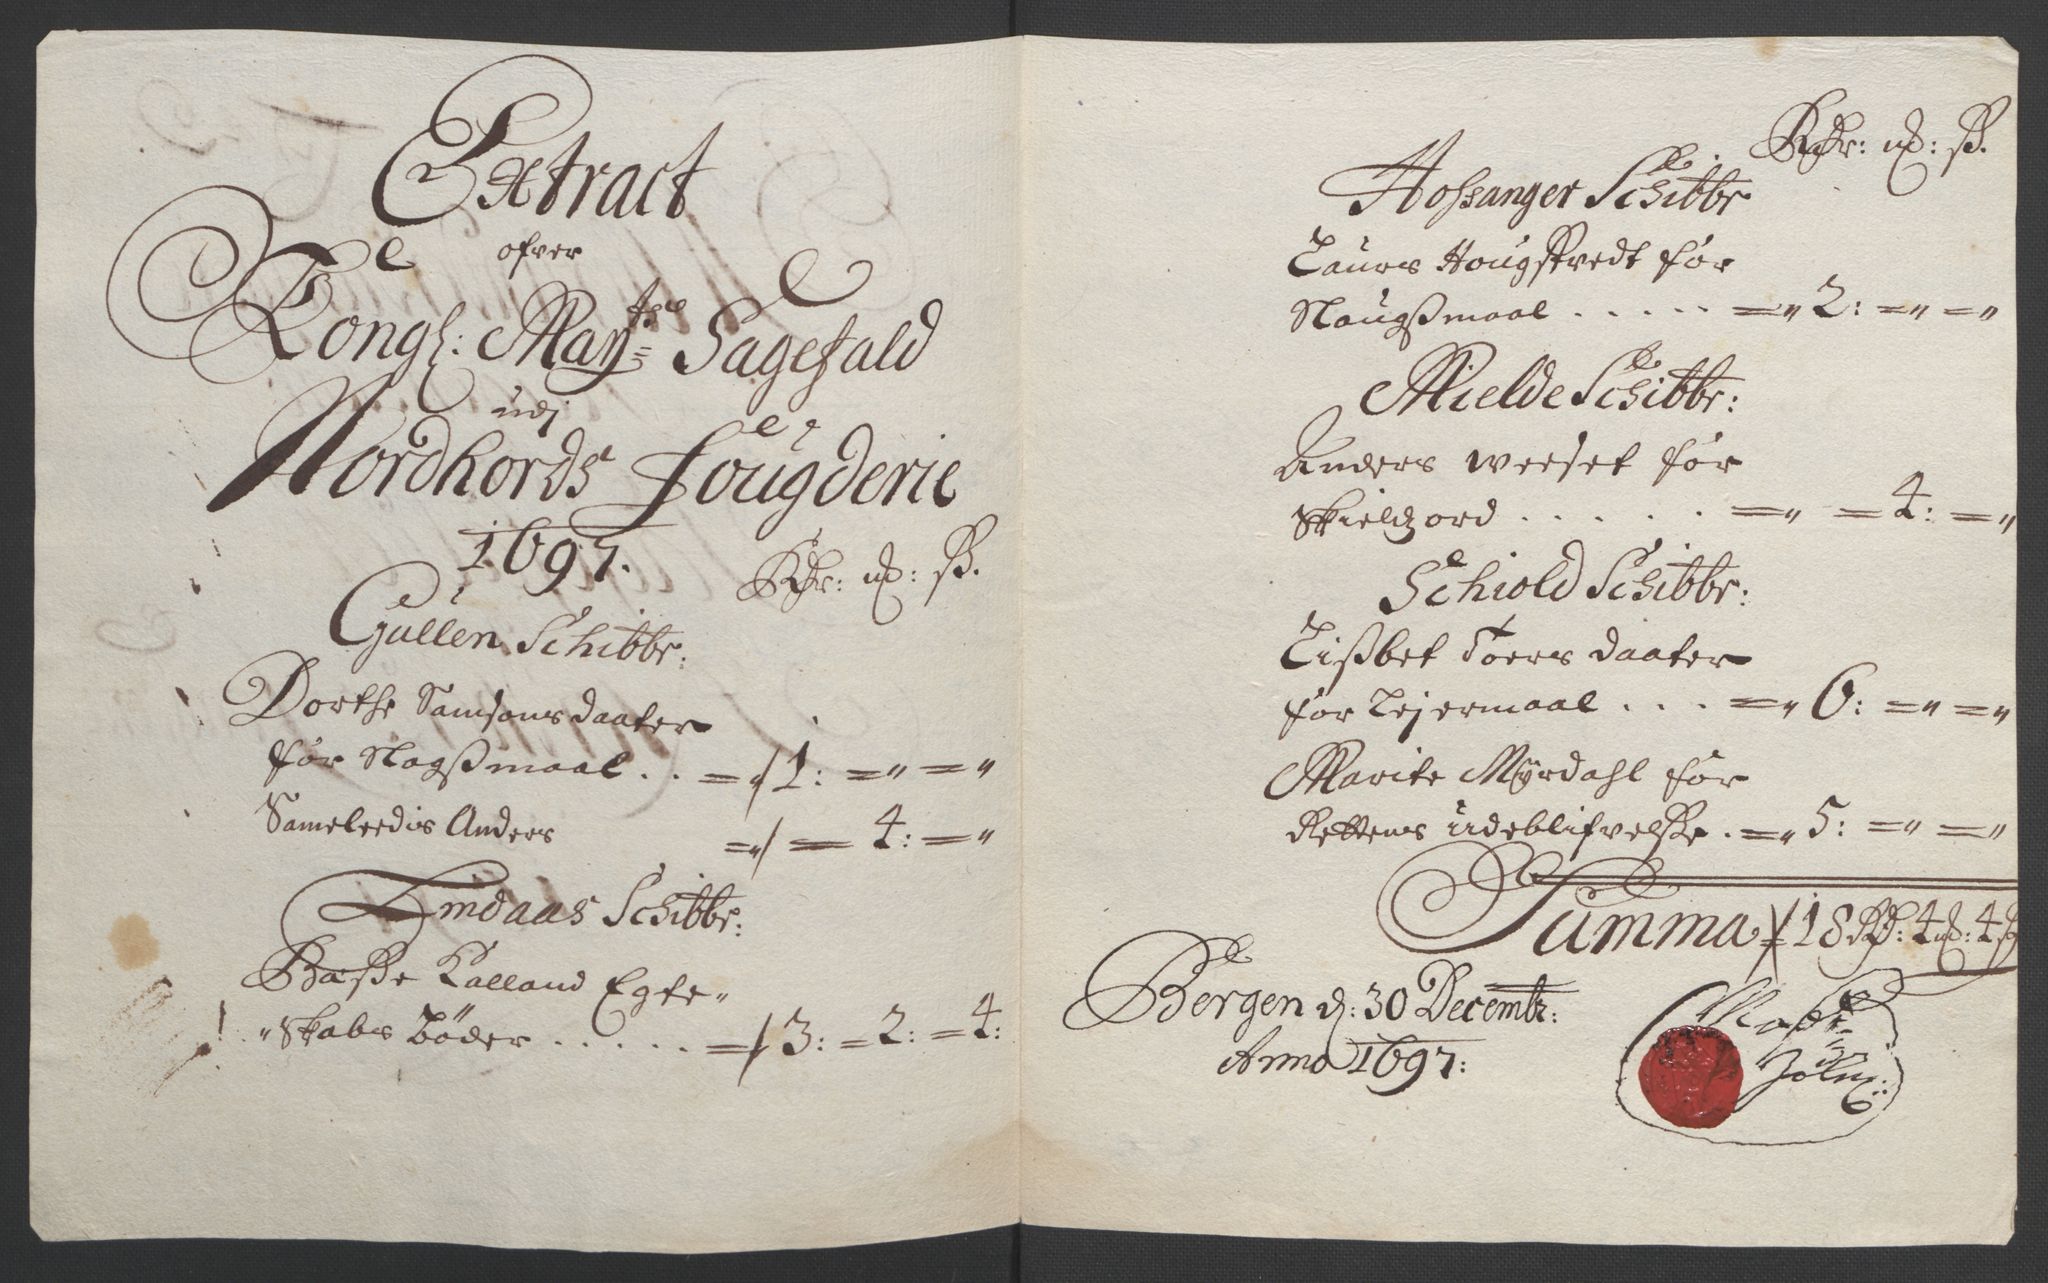 Extract
ofver
Kongl: May:ts Sagefald
udj
Nordhords fougderie
1697.
Rdr: mk: ß.
Gullen Schibbr:
Dorthe Samsons daater
for Nagßmaal . . =" 1: =" ="
Sameleedis Anders =" = 4: ="
Lindaas Schibbr:
Baße Kalland Egte=
"Skabs bøder . . . . . = 3: = 2: = 4:
Rdr: mk: ß.
Hoßanger Schibbr
Laurs Hougstvedt for
Naugßmaal . . . . . =" 2: =" ="
Mielde Schibbr:
Anders weeset for
Skieldzord . . . . . =" = 4: ="
Schiold Schibbr:
Lißbet Toers daater
for Lejermaal . . . =" 6: =" ="
Marite Myrdahl for
Rettens udeblifvelße . =" 5: =" ="
Summa 18 Rd: 4 mk: 4 ß
Bergen d: 30 Decembr:
Anno 1697: